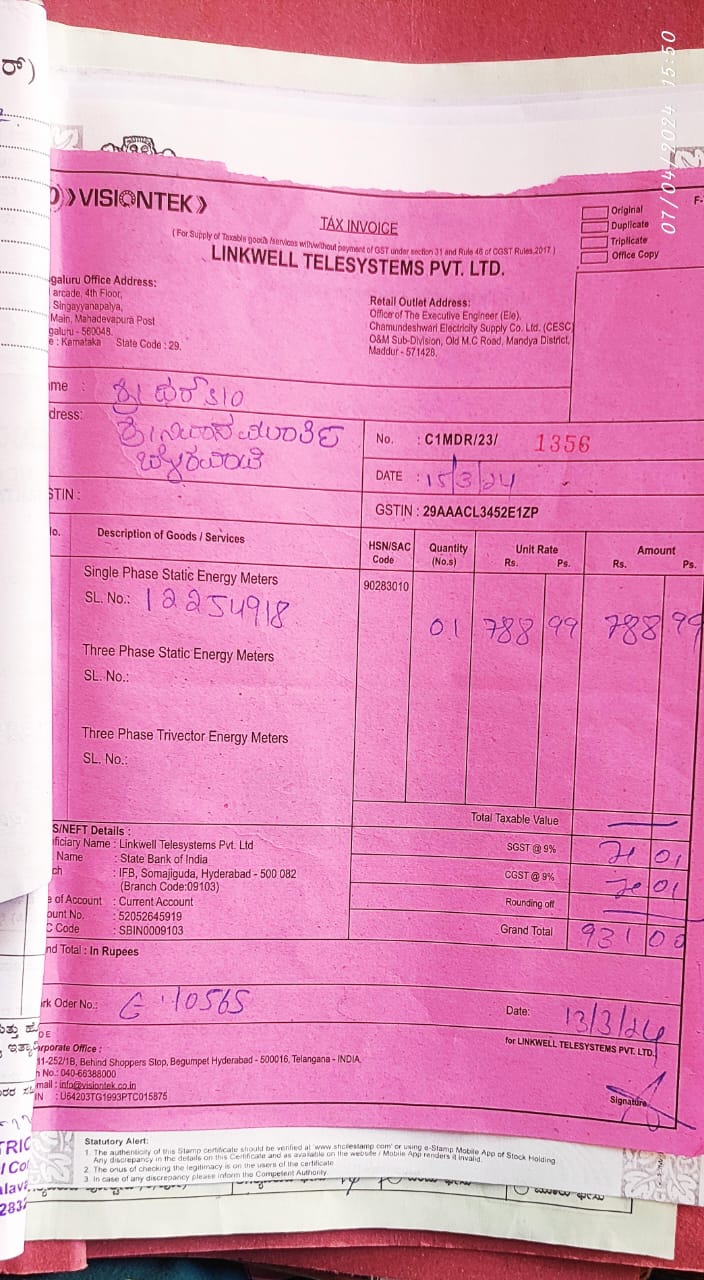 07/04/2024 15:50
ರ್)
VISIONTEK
TAX INVOICE
( For Supply of Taxable goods /services with/without payment of GST under section 31 and Rule 46 of CGST Rules.2017 )
LINKWELL TELESYSTEMS PVT. LTD.
Original
Duplicate
Triplicate
Office Copy
F-
galuru Office Address:
arcade, 4th Floor,
Singayyanapalya,
Main, Mahadevapura Post
galuru - 560048.
e : Karnataka State Code : 29.
Retail Outlet Address:
Office of The Executive Engineer (Ele),
Chamundeshwari Electricity Supply Co. Ltd. (CESC)
O&M Sub-Division, Old M.C Road, Mandya District,
Maddur - 571428.
me :
dress:
No. : C1MDR/23/ 1356
DATE : 15/3/24
STIN :
GSTIN : 29AAACL3452E1ZP
lo. Description of Goods / Services HSN/SAC Code Quantity (No.s) Unit Rate Rs. Ps. Amount Rs. Ps.
Single Phase Static Energy Meters 90283010
SL. No.: 12254918 01 788 99 788 99
Three Phase Static Energy Meters
SL. No.:
Three Phase Trivector Energy Meters
SL. No.:
Total Taxable Value
SGST @ 9% 71 01
CGST @ 9% 71 01
Rounding off
Grand Total 931 00
S/NEFT Details :
ficiary Name : Linkwell Telesystems Pvt. Ltd
Name : State Bank of India
ch : IFB, Somajiguda, Hyderabad - 500 082
(Branch Code:09103)
e of Account : Current Account
ount No. : 52052645919
C Code : SBIN0009103
nd Total : In Rupees
rk Oder No.: 10565
Date: 13/3/24
for LINKWELL TELESYSTEMS PVT. LTD.
DE
orporate Office :
11-252/1B, Behind Shoppers Stop, Begumpet Hyderabad - 500016, Telangana - INDIA.
h No.: 040-66388000
mail : info@visiontek.co.in
IN : U64203TG1993PTC015875
Signature
TRIC
l Co
alava
2832
Statutory Alert:
1. The authenticity of this Stamp certificate should be verified at 'www.shcilestamp.com' or using e-Stamp Mobile App of Stock Holding.
Any discrepancy in the details on this Certificate and as available on the website / Mobile App renders it invalid.
2. The onus of checking the legitimacy is on the users of the certificate.
3. In case of any discrepancy please inform the Competent Authority.